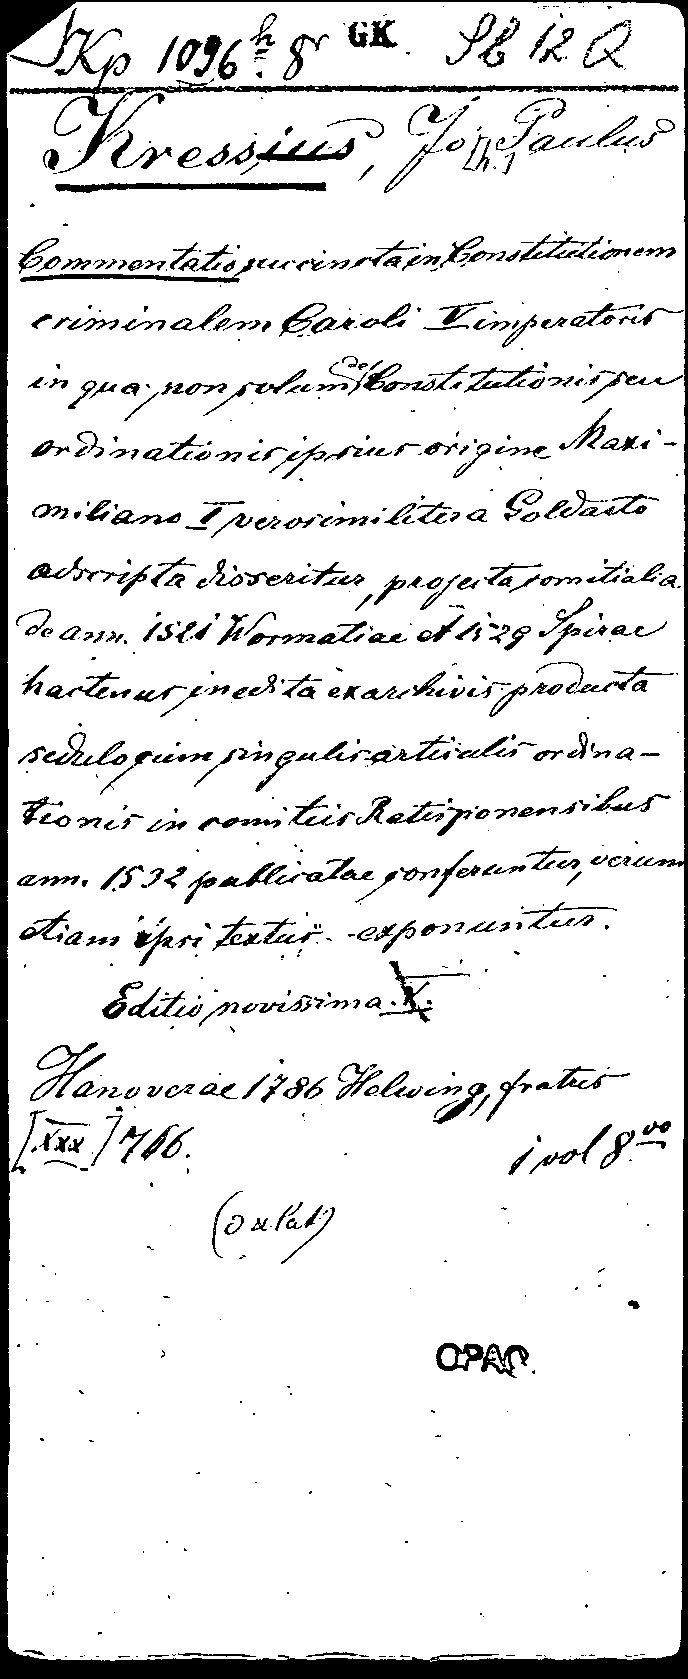 Kp 1096 h. 8r GK Sb 12 Q
Kressius, Jo[h.] Paulus
Commentatio succincta in Constitutionem
criminalem Caroli V imperatoris
in qua non solum de Constitutionis seu
ordinationis ipsius origine Maxi-
miliano I verosimiliter a Goldasto
adscripta disseritur, projecta comitialia
de ann. 1521 Wormatiae et 1529 Spirae
hactenus inedita ex archivis producta
sedulo cum singulis articulis ordina-
tionis in comitiis Ratisponensibus
ann. 1532 publicatae conferuntur, verum
etiam ipsi textus exponuntur.
Editio novissima.
Hanoverae 1786 Helwing, fratres
[XXX] 766.
1 vol 8vo
OPAC